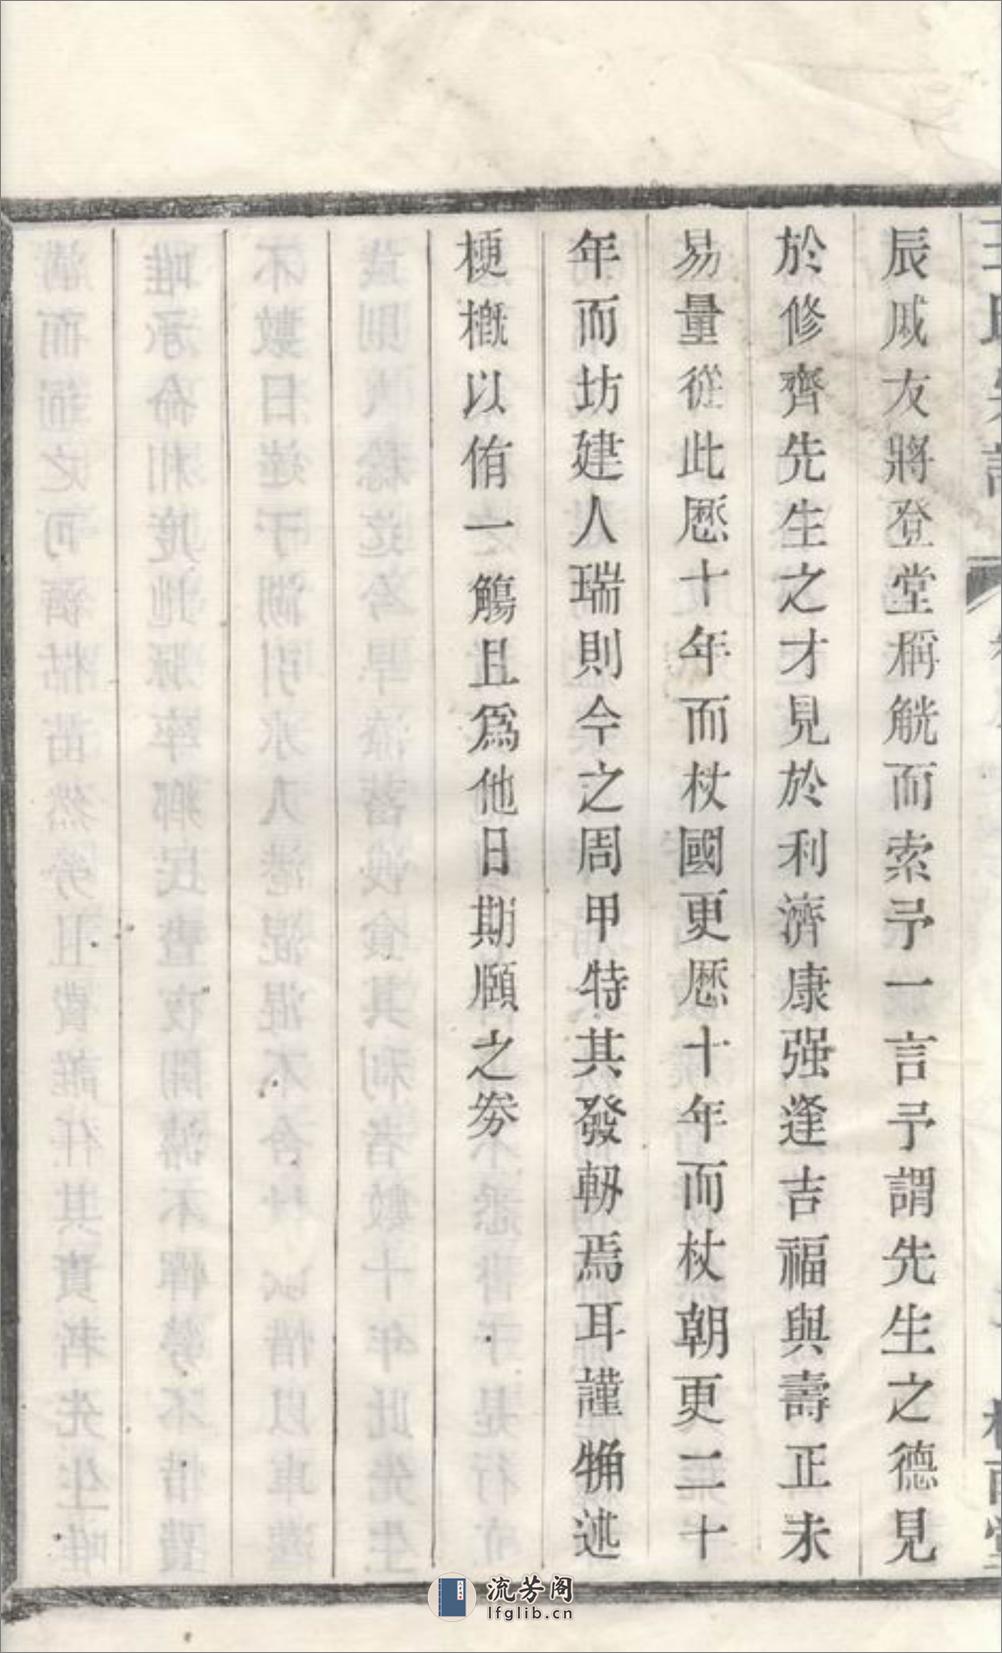 辰戚友將登堂稱觥而索予一言予謂先生之德見
於修齊先生之才見於利濟康强逢吉福與壽正未
易量從此歷十年而杖國更歷十年而杖朝更二十
年而坊建人瑞則今之周甲特其發軔焉耳謹觕述
梗槪以侑一觴且爲他日期頤之劵
流芳阁
lfglib.cn